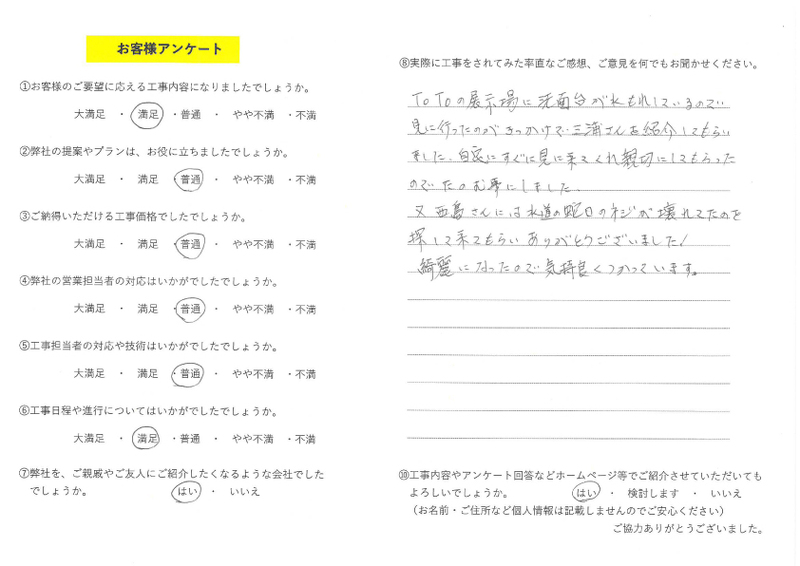 お客様アンケート
①お客様のご要望に応える工事内容になりましたでしょうか。
大満足 ・ 満足 ・普通 ・ やや不満 ・不満
②弊社の提案やプランは、お役に立ちましたでしょうか。
大満足 ・ 満足 ・普通 ・ やや不満 ・不満
③ご納得いただける工事価格でしたでしょうか。
大満足 ・ 満足 ・普通 ・ やや不満 ・不満
④弊社の営業担当者の対応はいかがでしたでしょうか。
大満足 ・ 満足 ・普通 ・ やや不満 ・不満
⑤工事担当者の対応や技術はいかがでしたでしょうか。
大満足 ・ 満足 ・普通 ・ やや不満 ・不満
⑥工事日程や進行についてはいかがでしたでしょうか。
大満足 ・ 満足 ・普通 ・ やや不満 ・不満
⑦弊社を、ご親戚やご友人にご紹介したくなるような会社でした
でしょうか。 はい ・ いいえ
⑧実際に工事をされてみた率直なご感想、ご意見を何でもお聞かせください。
ToToの展示場に洗面台が水もれしているので
見に行ったのがきっかけで三浦さんを紹介してもらい
ました。自宅にすぐに見に来てくれ親切にしてもらった
のでたのむ事にしました。
又西島さんには水道の蛇口のネジが壊れてたのを
探して来てもらいありがとうございました!
綺麗になったので気持良くつかっています。
⑩工事内容やアンケート回答などホームページ等でご紹介させていただいても
よろしいでしょうか。 はい ・ 検討します ・ いいえ
（お名前・ご住所など個人情報は記載しませんのでご安心ください）
ご協力ありがとうございました。